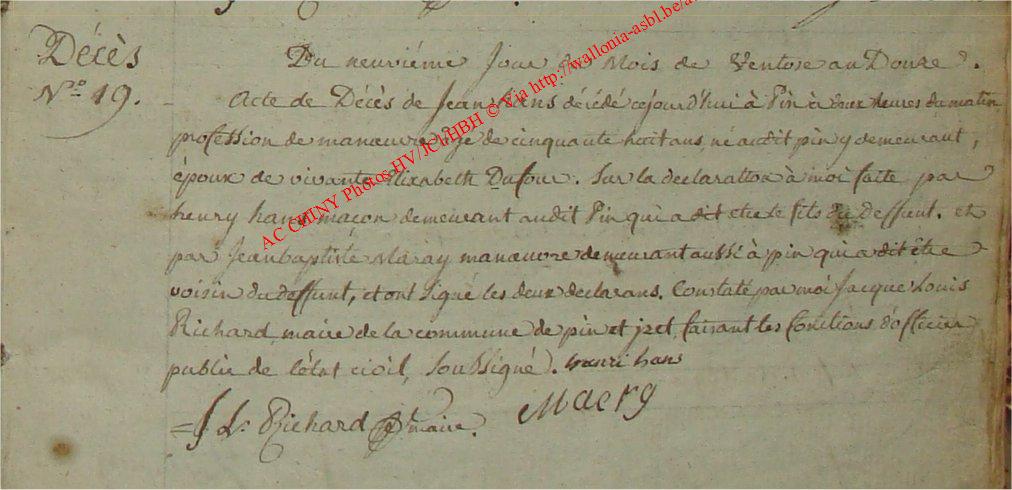 Décès
N.º 19.
Du neuvième Jour du Mois de Ventose an Douze.
Acte de Décès de Jean Hans décédé cejourd'hui à Pin à deux heures du matin
profession de manœuvre âgé de cinquante huit ans, né audit pin y demeurant,
époux de vivante Elizabeth Dufour. Sur la declaration à moi faite par
henry hans maçon demeurant audit Pin qui a dit etre le fils du Deffunt. et
par Jeanbaptiste Maray manœuvre demeurant aussi à pin qui a dit être
voisin du deffunt, et ont signé les deux declarans. Constaté par moi Jacque Louis
Richard, maire de la commune de pin et jzel, faisant les fonctions d'officier
public de l'état civil, soussigné. henri hans
Maerg
J. L. Richard maire.
AC CHINY Photos HV/JCL/HBH © Via http://wallonia-asbl.be/